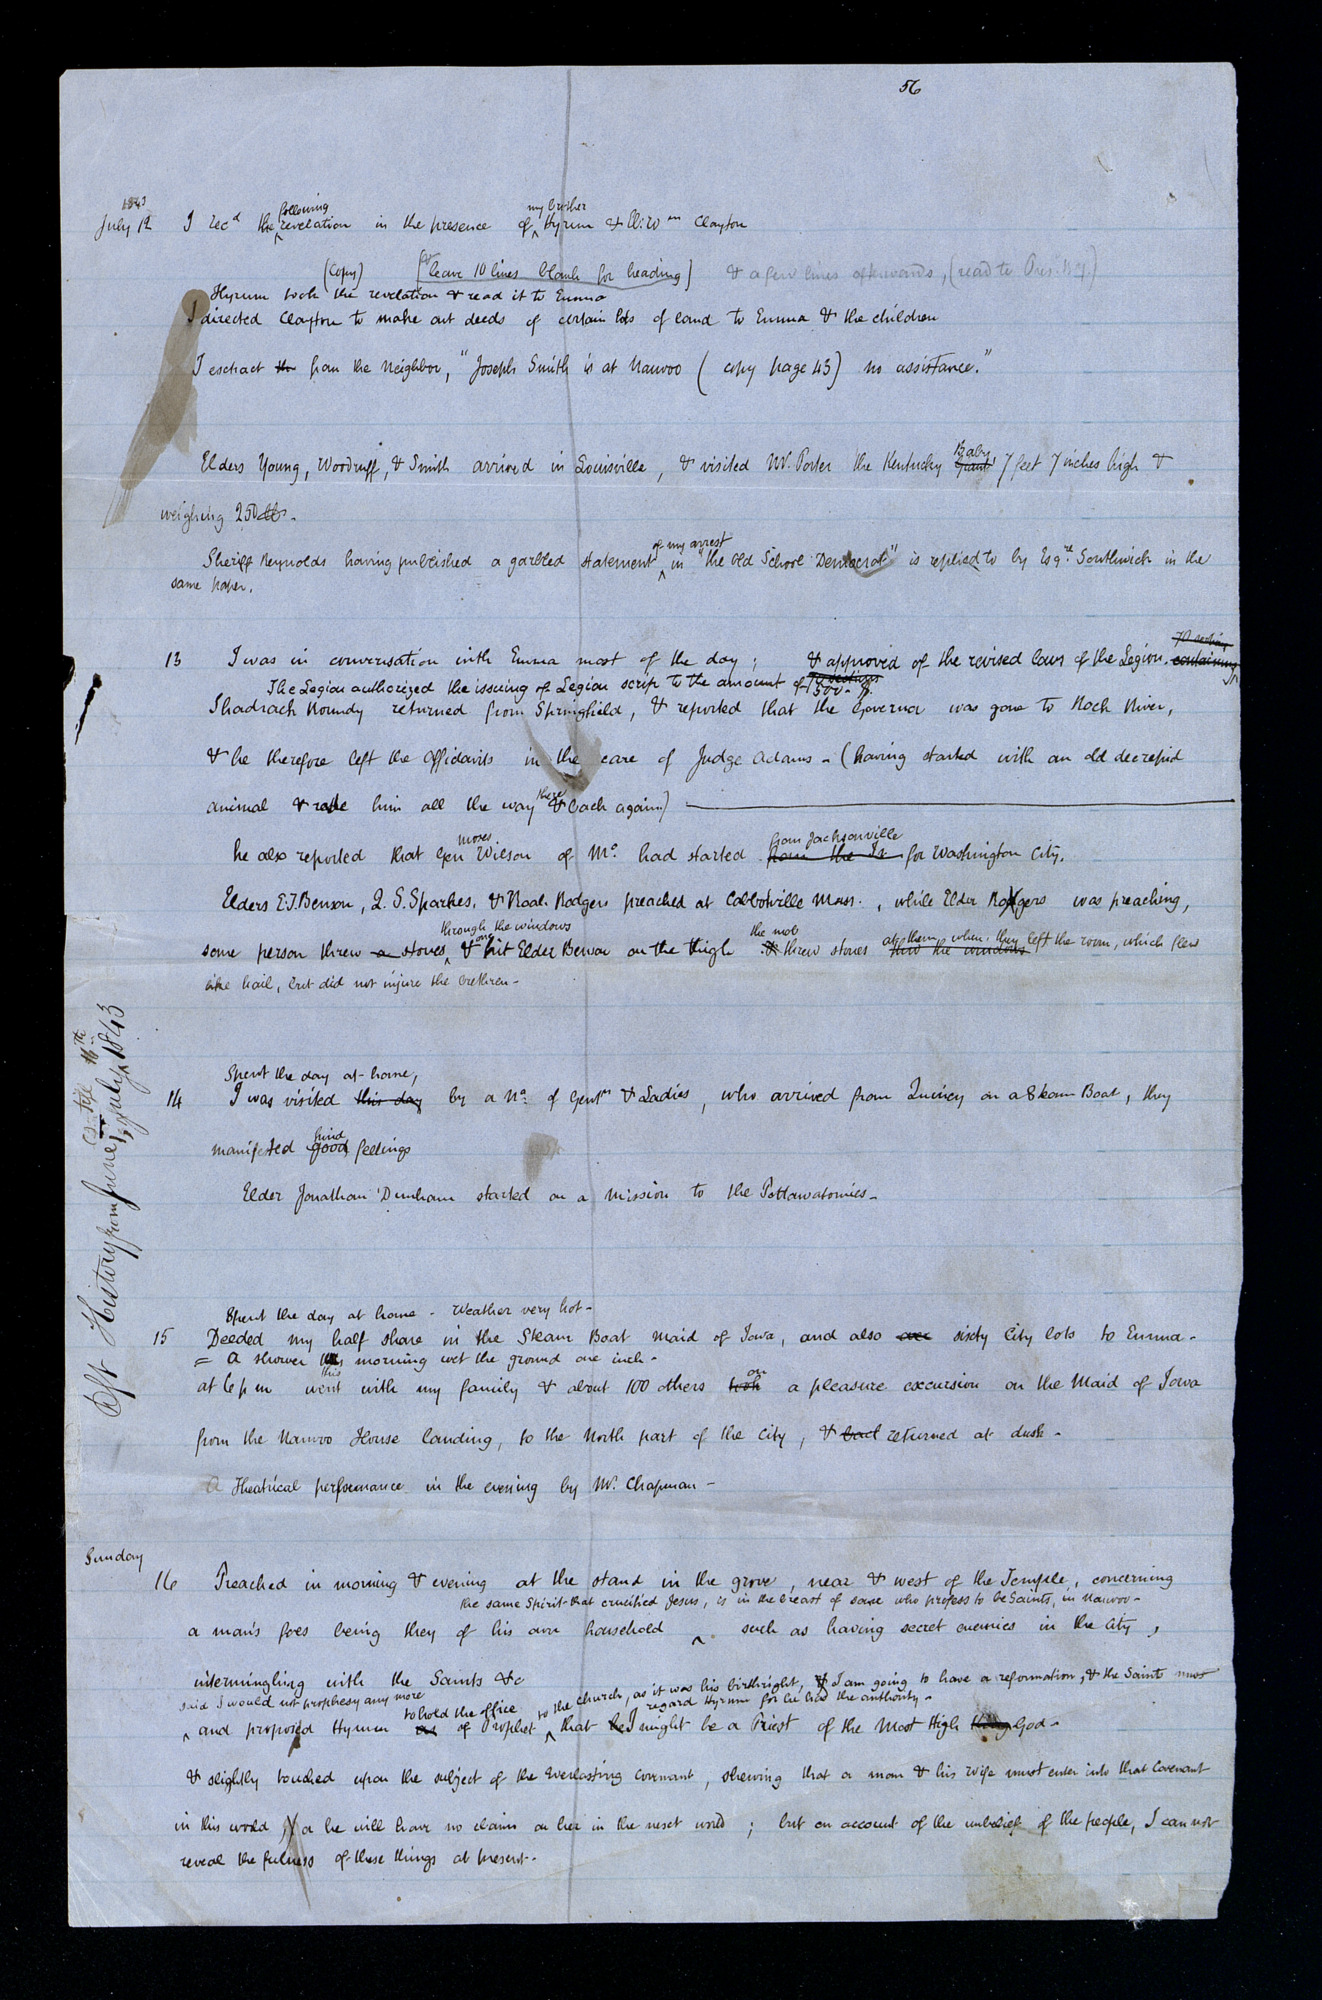 56
1843
July 12 I recd the following revelation in the presence of my brother Hyrum & Eld: Wm Clayton
(Copy) [leave 10 lines blank for heading] & a few lines afterwards, (read to Prest B Y.)
Hyrum took the revelation & read it to Emma
I directed Clayton to make out deeds of certain lots of land to Emma & the children
I extract the from the Neighbor, "Joseph Smith is at Nauvoo (copy page 43) no assistance."
Elders Young, Woodruff, & Smith arrived in Louisville, & visited Mr. Porter the Kentucky Giant Baby, 7 feet 7 inches high &
weighing 250 lbs.
Sheriff Reynolds having published a garbled statement of my arrest in "the Old School Democrat" is replied to by Esqre. Southwick in the
same paper.
13 I was in conversation with Emma most of the day; & approved of the revised laws of the Legion. containing
70 sections
The Legion authorized the issuing of Legion scrip to the amount of $500-
Shadrach Roundy returned from Springfield, & reported that the Governor was gone to Rock River,
& he therefore left the affidavits in the care of Judge Adams - (having started with an old decrepid
animal & rode him all the way there & back again)
he also reported that Gen Moses Wilson of Mo. had started from the from Jacksonville for Washington City.
Elders E. T. Benson, Q. S. Sparkes, & Noah Rodgers preached at Cabbotville Mass., while Elder Rodgers was preaching,
some person threw a stones through the windows & one hit Elder Benson on the thigh & the mob threw stones thro the windows at them when they left the room, which flew
like hail, but did not injure the brethren -
14 Spent the day at home,
I was visited this day by a No. of Gentn & Ladies, who arrived from Quincy on a Steam Boat, they
manifested good kind feelings
Elder Jonathan Dunham started on a mission to the Pottawatomies -
Spent the day at home - Weather very hot -
15 Deeded my half share in the Steam Boat Maid of Iowa, and also over sixty City lots to Emma -
= A shower this morning wet the ground one inch -
at 6 p m went with my family & about 100 others took on a pleasure excursion on the Maid of Iowa
from the Nauvoo House landing, to the North part of the City, & back returned at dusk -
A Theatrical performance in the evening by Mr. Chapman -
Sunday
16 Preached in morning & evening at the stand in the grove, near & west of the Temple, concerning
the same Spirit that crucified Jesus, is in the breast of some who profess to be Saints, in Nauvoo -
a man's foes being they of his own household ^ such as having secret enemies in the City,
intermingling with the Saints &c
said I would not prophesy any more to hold the office to the church, as it was his birthright, & I am going to have a reformation, & the Saints must
regard Hyrum for he has the authority -
^ and proposed Hyrum as of Prophet ^ that he I might be a Priest of the Most High God -
& slightly touched upon the subject of the Everlasting Covenant, shewing that a man & his wife must enter into that Covenant
in this world, or he will have no claim on her in the next world; but on account of the unbelief of the people, I can not
reveal the fulness of these things at present -
Rft History from June 1 to July 16th 1843